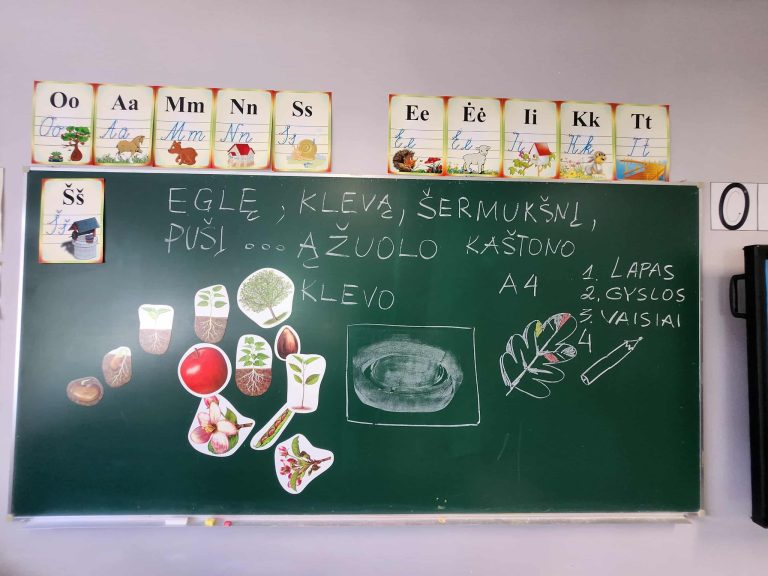 Oo Aa Mm Nn Ss Ee Ėė Ii Kk Tt
Oo Aa Mm Nn Ss Ee Ėė Ii Kk Tt
Šš
Šš
EGLĘ, KLEVĄ, ŠERMUKŠNĮ,
PUŠĮ ... ĄŽUOLO KAŠTONO
KLEVO
A4
1. LAPAS
2. GYSLOS
3. VAISIAI
4
O